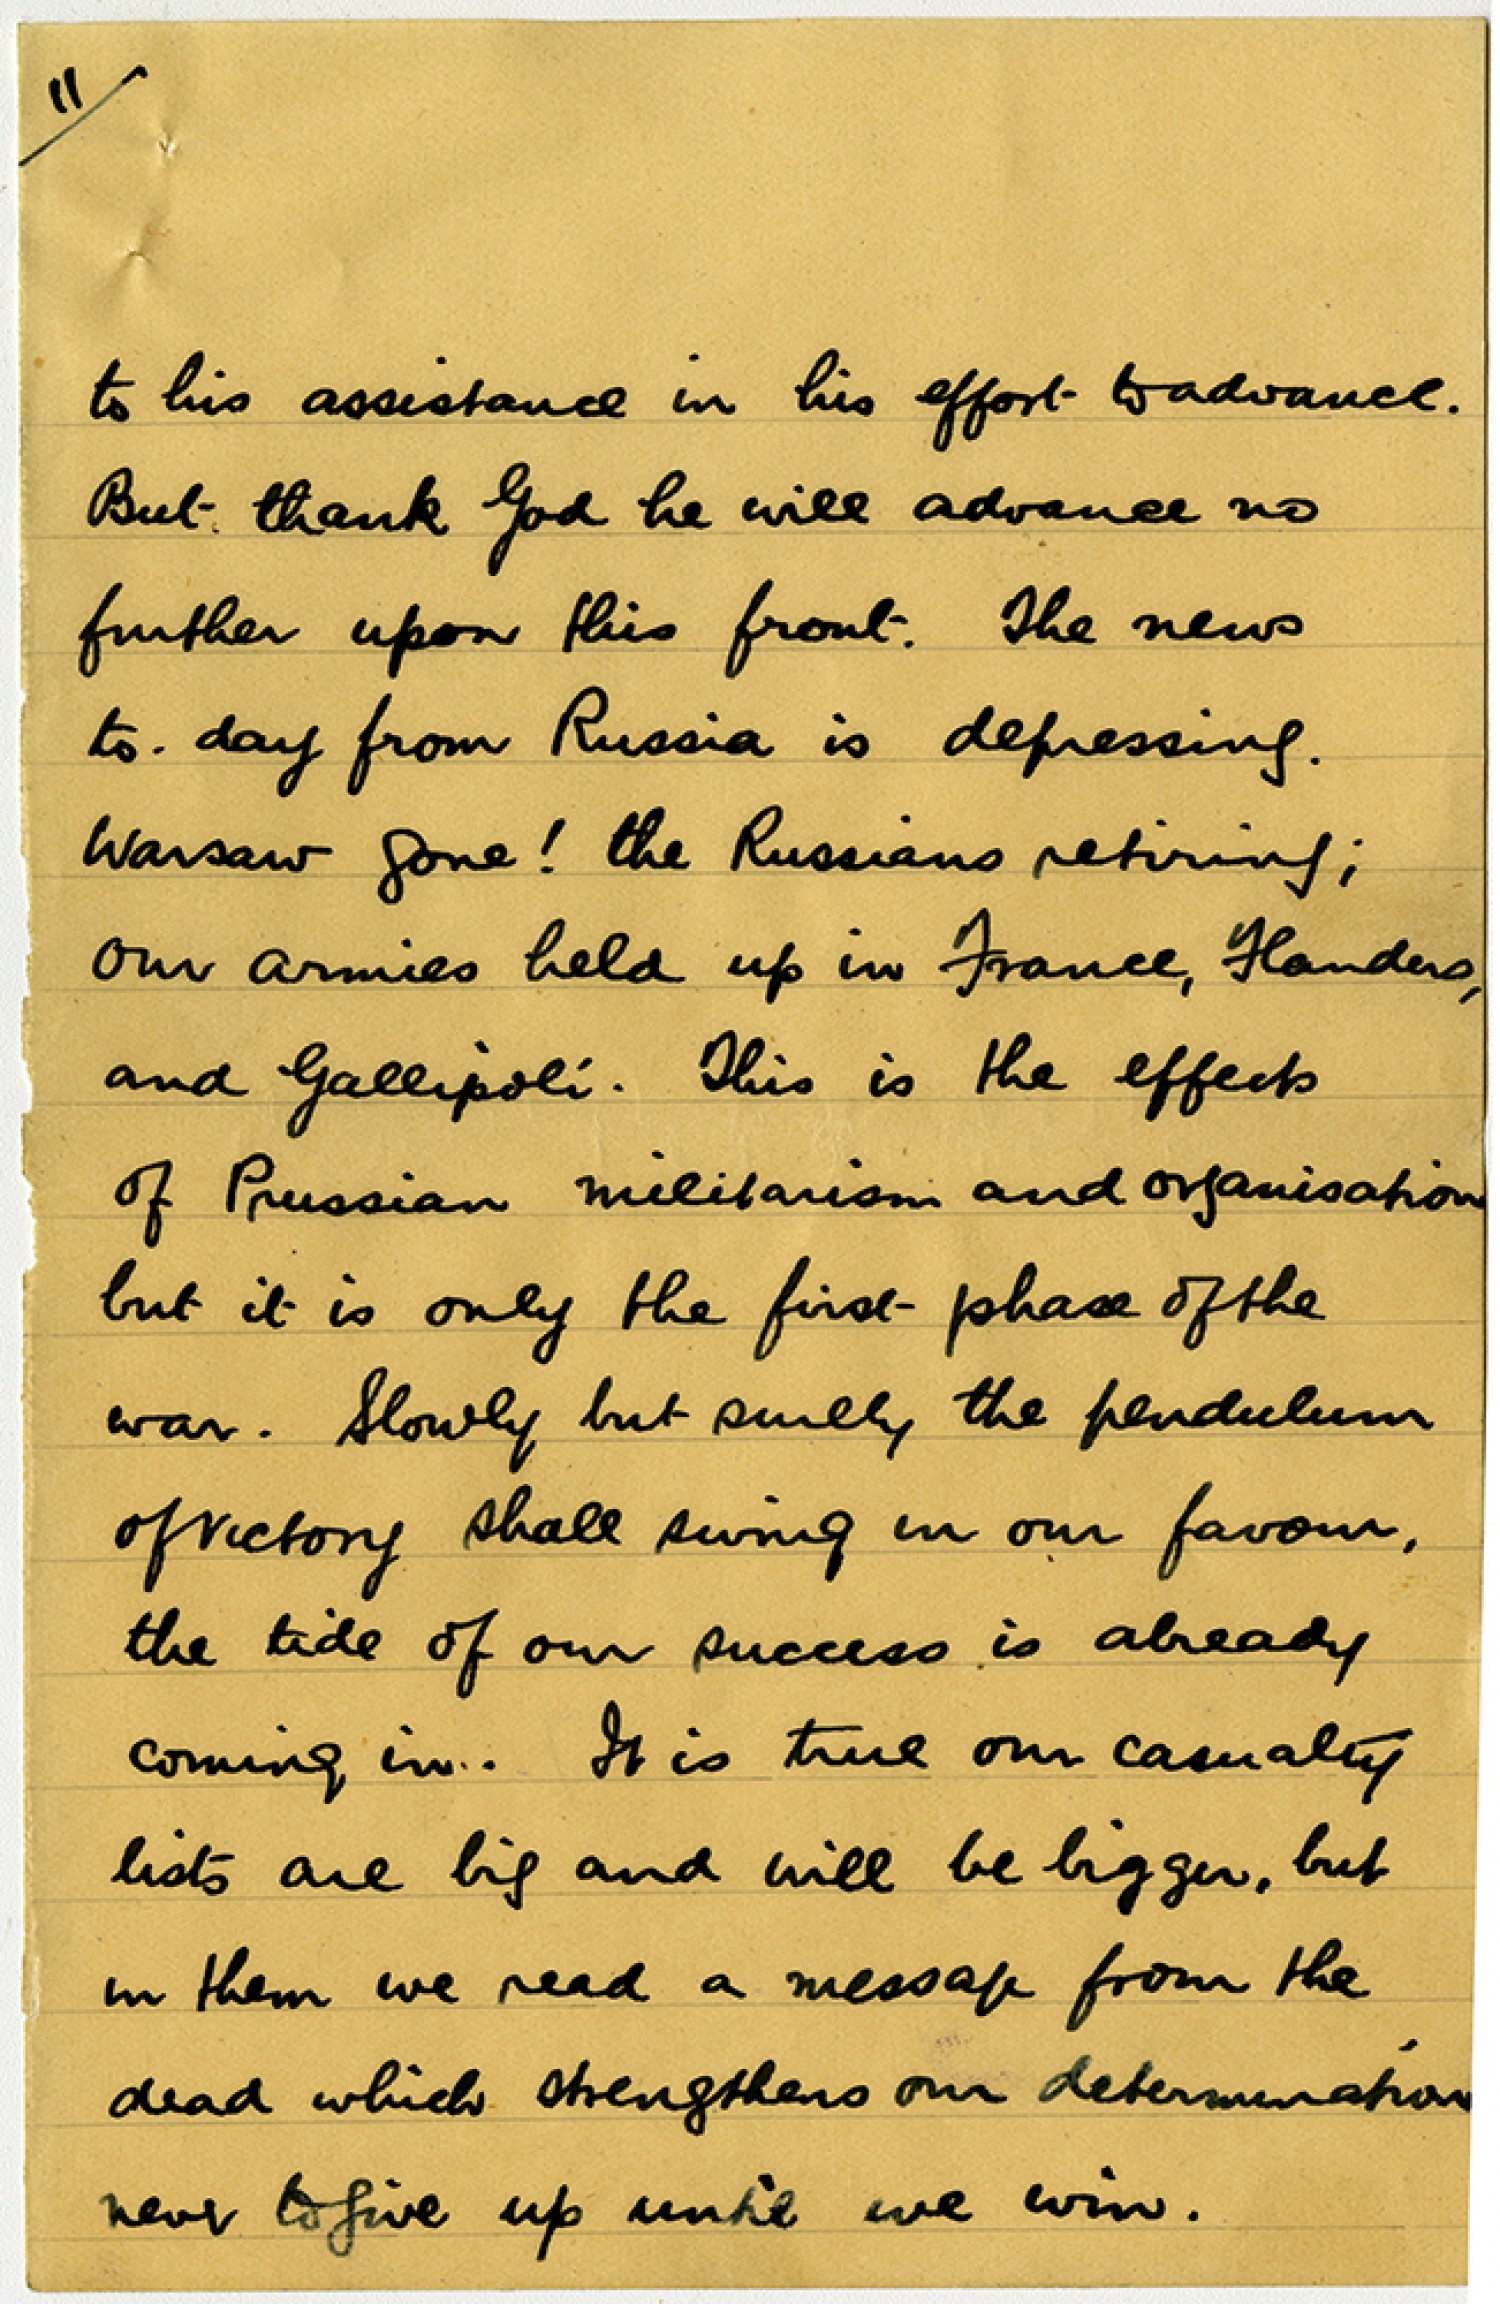 11
to his assistance in his effort to advance.
But thank God he will advance no
further upon this front. The news
to-day from Russia is depressing.
Warsaw gone! the Russians retiring;
Our armies held up in France, Flanders,
and Gallipoli. This is the effects
of Prussian militarism and organisation
but it is only the first phase of the
war. Slowly but surely the pendulum
of victory shall swing in our favour,
the tide of our success is already
coming in. It is true our casualty
lists are big and will be bigger, but
in them we read a message from the
dead which strengthens our determination
never to give up until we win.